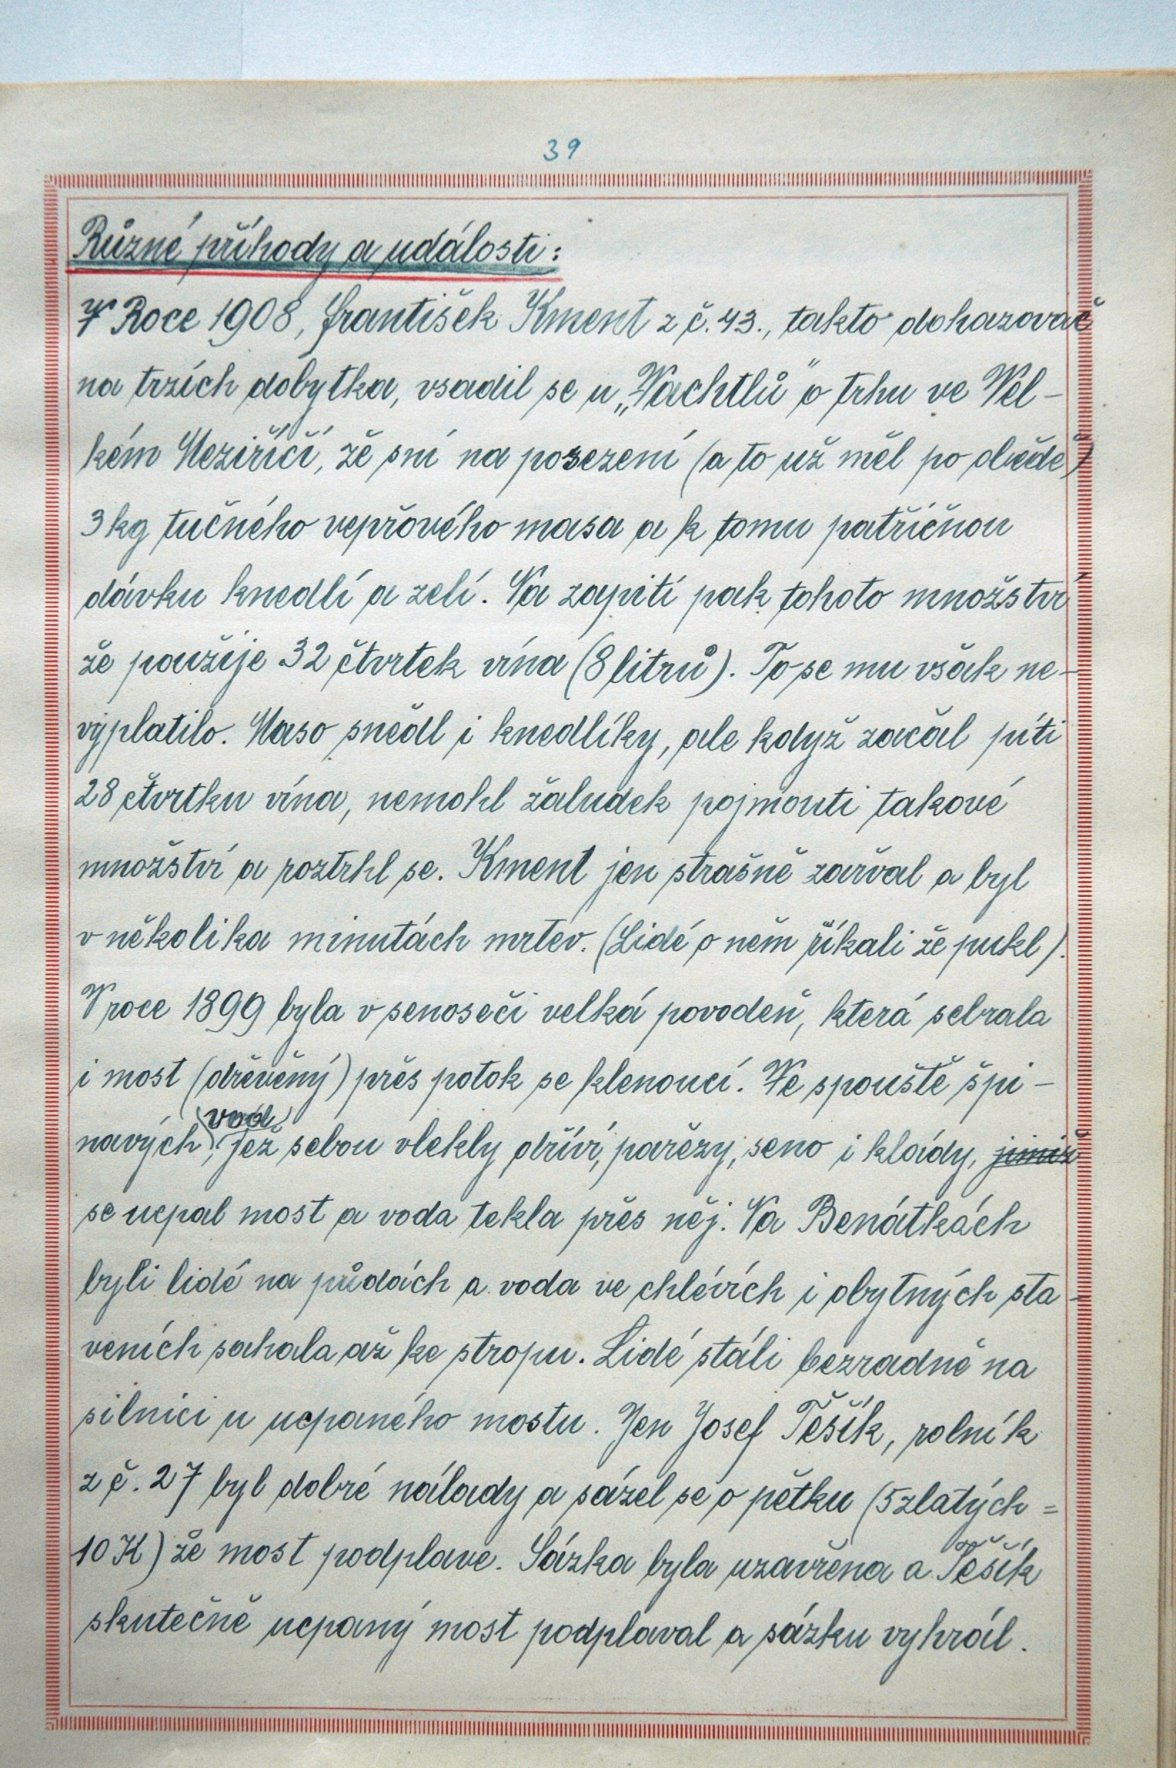 39
Různé příhody a události:
V Roce 1908, František Kment z č. 43., takto dohazovač
na trzích dobytka, vsadil se u „Wachtlů" o trhu ve Vel-
kém Meziříčí, že sní na posezení (a to už měl po obědě)
3 kg tučného vepřového masa a k tomu patřičnou
dávku knedlí a zelí. Na zapití pak tohoto množství
že použije 32 čtvrtek vína (8 litrů). To se mu však ne-
vyplatilo. Maso snědl i knedlíky, ale když začal píti
28 čtvrtku vína, nemohl žaludek pojmouti takové
množství a roztrhl se. Kment jen strašně zařval a byl
v několika minutách mrtev. (Lidé o něm říkali že pukl).
V roce 1899 byla v senoseči velká povodeň, která sebrala
i most (dřevěný) přes potok se klenoucí. Ve spouště špi-
navých (vod), jež sebou vlekly dříví, pařezy, seno i klády, jimiž
se ucpal most a voda tekla přes něj. Na Benátkách
byli lidé na půdách a voda ve chlévích i obytných sta-
veních sahala až ke stropu. Lidé stáli bezradně na
silnici u ucpaného mostu. Jen Josef Těšík, rolník
z č. 27 byl dobré nálady a sázel se o pětku (5 zlatých =
10 K) že most podplave. Sázka byla uzavřena a Těšík
skutečně ucpaný most podplaval a sázku vyhrál.